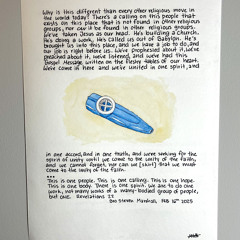 Why is this different than every other religious move in
the world today? There's a calling on this people that
exists on this place that is not found in other religious
groups, nor can it be found in other religious groups.
We've taken Jesus as our head. He's building a church,
He's doing a work, He's called us out of Babylon. He's
brought us into this place, and we have a job to do, and
our job is right before us. We've prophesied about it, we've
preached about it, we've listened, and we've had this
Gospel Message written on the fleshy tables of our heart.
We've come in here and we're united in one spirit, and
in one accord, and in one truth, and we're seeking for the
spirit of unity until we come to the unity of the faith,
and we cannot forget, nor can we [skirt] that we must
come to the unity of the faith.
...
This is one people. This is one calling. This is one hope.
This is one body. There is one spirit. We are to do one
work, not many works of a many-bodied group of people,
but one. Revelations 2:7
Bro Steven Marshall, Feb 16th 2025